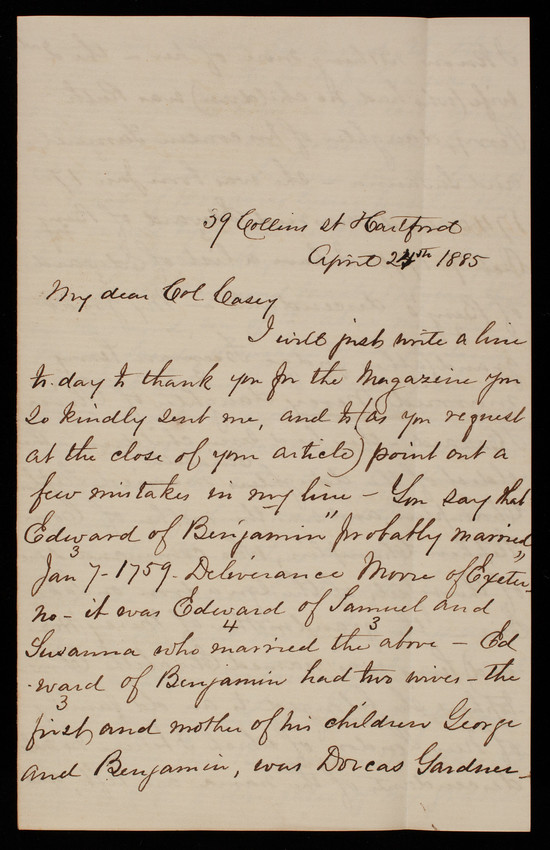 39 Collins st Hartford
April 24th 1885
My dear Col Casey
I will just write a line
to-day to thank you for the Magazine you
so kindly sent me, and to (as you request
at the close of your article) point out a
few mistakes in my line - You say that
Edward of Benjamin "probably married
3
Jan 7-1759. Deliverance Moore of Exeter"
no - it was Edward of Samuel and
4 3
Susanna who married the above - Ed
-ward of Benjamin had two wives - the
3
first, and mother of his children George
and Benjamin, was Dorcas Gardner -